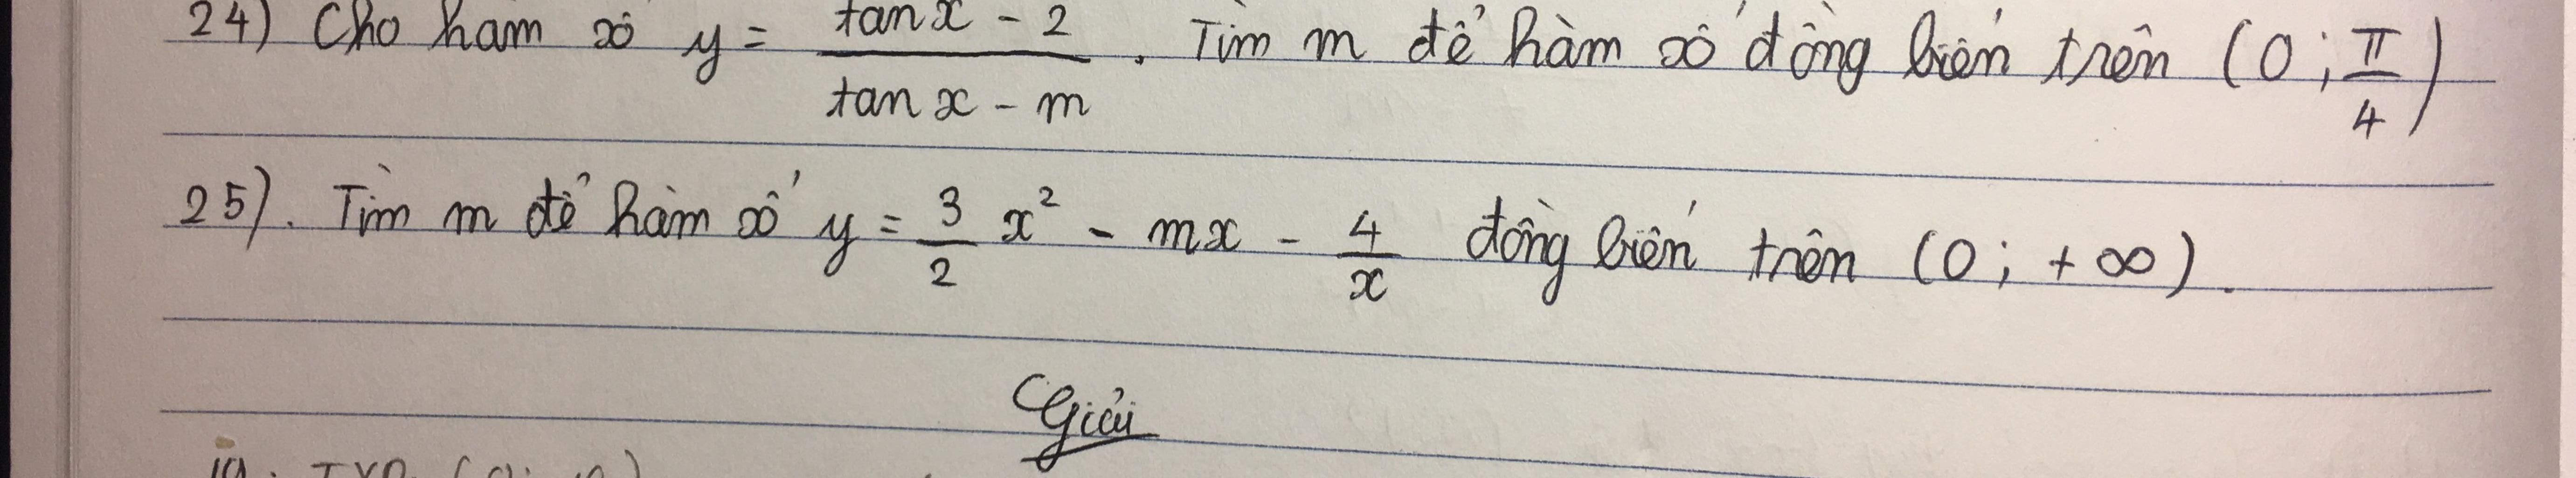 24) Cho hàm số y = \frac{tan x - 2}{tan x - m}. Tìm m để hàm số đồng biến trên (0; \frac{π}{4})
25). Tìm m để hàm số y = \frac{3}{2} x² - mx - \frac{4}{x} đồng biến trên (0; +∞).
Giải